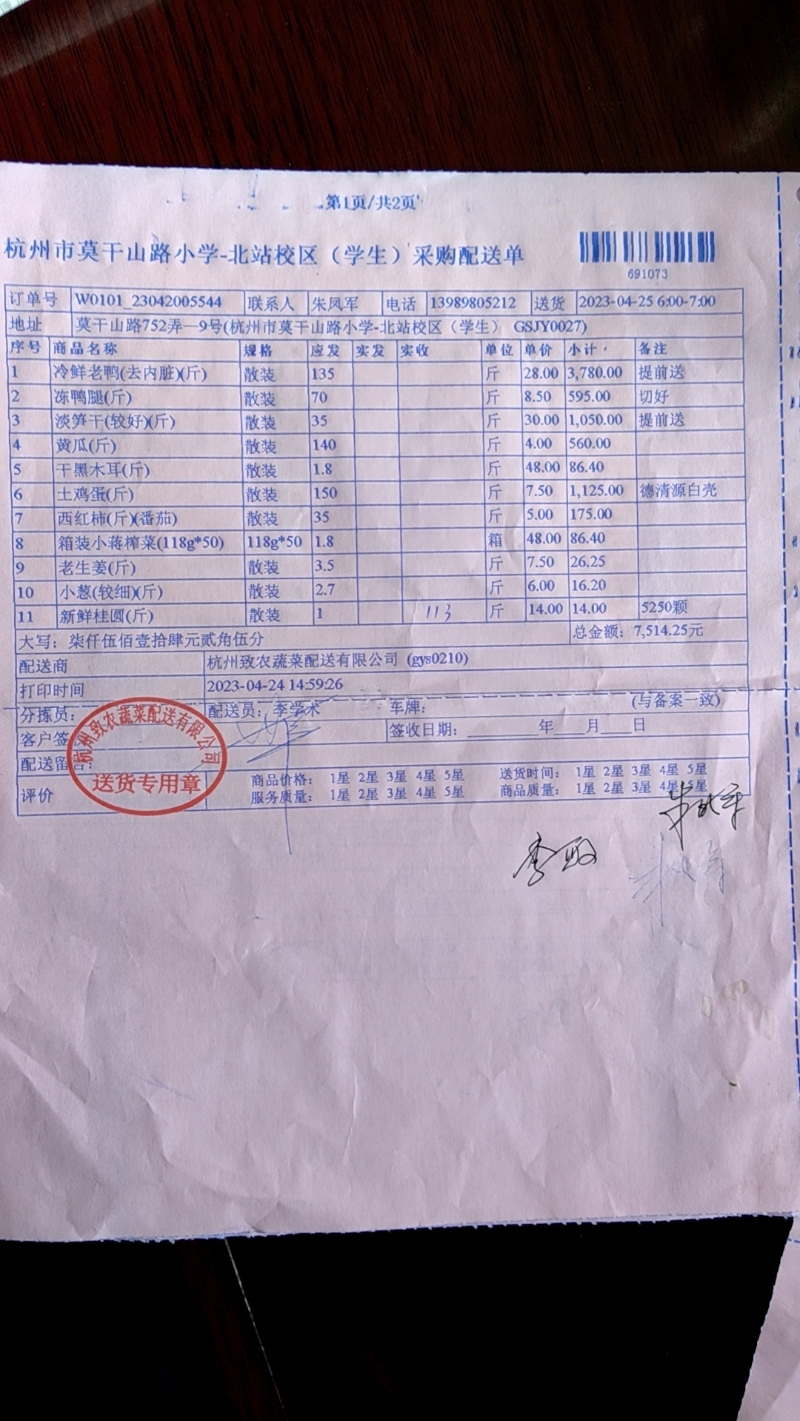 第1页/共2页
杭州市莫干山路小学-北站校区（学生）采购配送单
691073
订单号 W0101_23042005544 联系人 朱凤军 电话 13989805212 送货 2023-04-25 6:00-7:00
地址 莫干山路752弄一9号(杭州市莫干山路小学-北站校区（学生） GSJY0027)
序号 商品名称 规格 应发 实发 实收 单位 单价 小计 备注
1 冷鲜老鸭(去内脏)(斤) 散装 135 斤 28.00 3,780.00 提前送
2 冻鸭腿(斤) 散装 70 斤 8.50 595.00 切好
3 淡笋干(较好)(斤) 散装 35 斤 30.00 1,050.00 提前送
4 黄瓜(斤) 散装 140 斤 4.00 560.00
5 干黑木耳(斤) 散装 1.8 斤 48.00 86.40
6 土鸡蛋(斤) 散装 150 斤 7.50 1,125.00 德清源白壳
7 西红柿(斤)(番茄) 散装 35 斤 5.00 175.00
8 箱装小蒋榨菜(118g*50) 118g*50 1.8 箱 48.00 86.40
9 老生姜(斤) 散装 3.5 斤 7.50 26.25
10 小葱(较细)(斤) 散装 2.7 斤 6.00 16.20
11 新鲜桂圆(斤) 散装 1 113 斤 14.00 14.00 5250颗
大写：柒仟伍佰壹拾肆元贰角伍分 总金额：7,514.25元
配送商 杭州致农蔬菜配送有限公司 (gys0210)
打印时间 2023-04-24 14:59:26
分拣员： 配送员：李学术 车牌： (与备案一致)
客户签 签收日期： 年 月 日
配送留言：
评价 商品价格： 1星 2星 3星 4星 5星 送货时间： 1星 2星 3星 4星 5星
服务质量： 1星 2星 3星 4星 5星 商品质量： 1星 2星 3星 4星 5星
杭州致农蔬菜配送有限公司
送货专用章